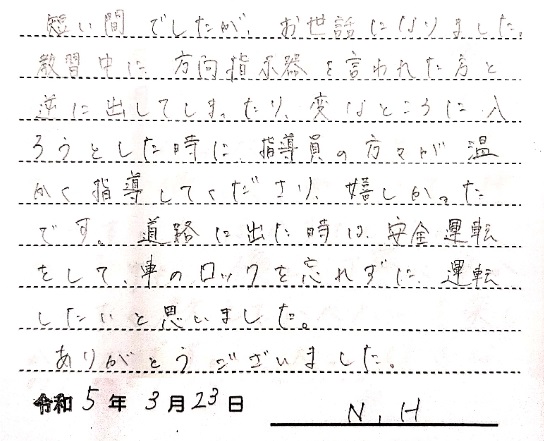 短い間でしたが、お世話になりました。
教習中に方向指示器を言われた方と
逆に出してしまったり、変なところに入
ろうとした時に、指導員の方々が温
かく指導してくださり、嬉しかった
です。道路に出た時は、安全運転
をして、車のロックを忘れずに、運転
したいと思いました。
ありがとうございました。
令和 5 年 3 月 23 日
N,H